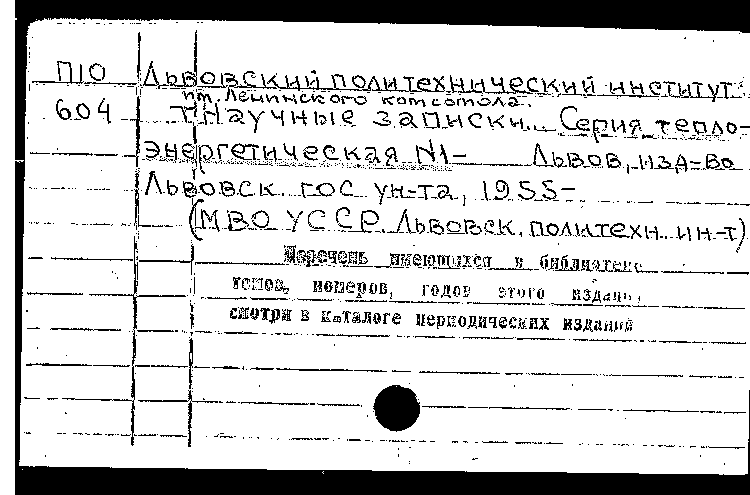 П10 Львовский политехнический институт
им. Ленинского комсомола.
604 Научные записки... Серия тепло-
энергетическая №1- Львов, изд-во
Львовск. гос ун-та, 1955-.
(МВО УССР. Львовск. политехн. ин-т)
Перечень имеющихся в библиотеке
томов, номеров, годов этого издания,
смотри в каталоге периодических изданий